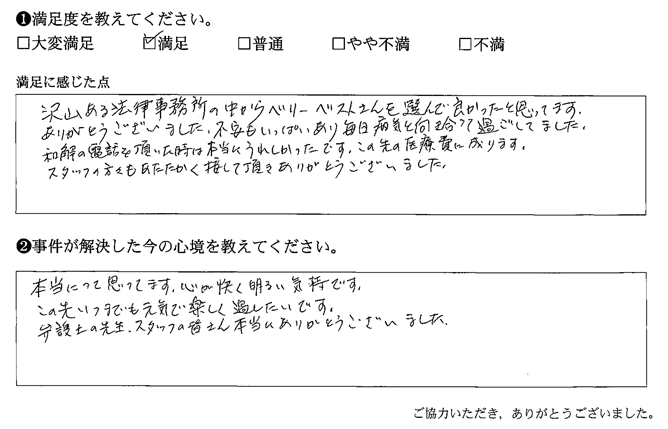 ❶満足度を教えてください。
□大変満足 ☑満足 □普通 □やや不満 □不満
満足に感じた点
沢山ある法律事務所の中からベリーベストさんを選んで良かったと思ってます。
ありがとうございました。不安もいっぱいあり毎日病気と向き合って過ごしてました。
和解の電話を頂いた時は本当にうれしかったです。この先の医療費に成ります。
スタッフの方々もあたたかく接して頂きありがとうございました。
❷事件が解決した今の心境を教えてください。
本当に 思ってます。心が快く明るい気持です。
この先いつまでも元気で楽しく過したいです。
弁護士の先生、スタッフの皆さん本当にありがとうございました。
ご協力いただき、ありがとうございました。